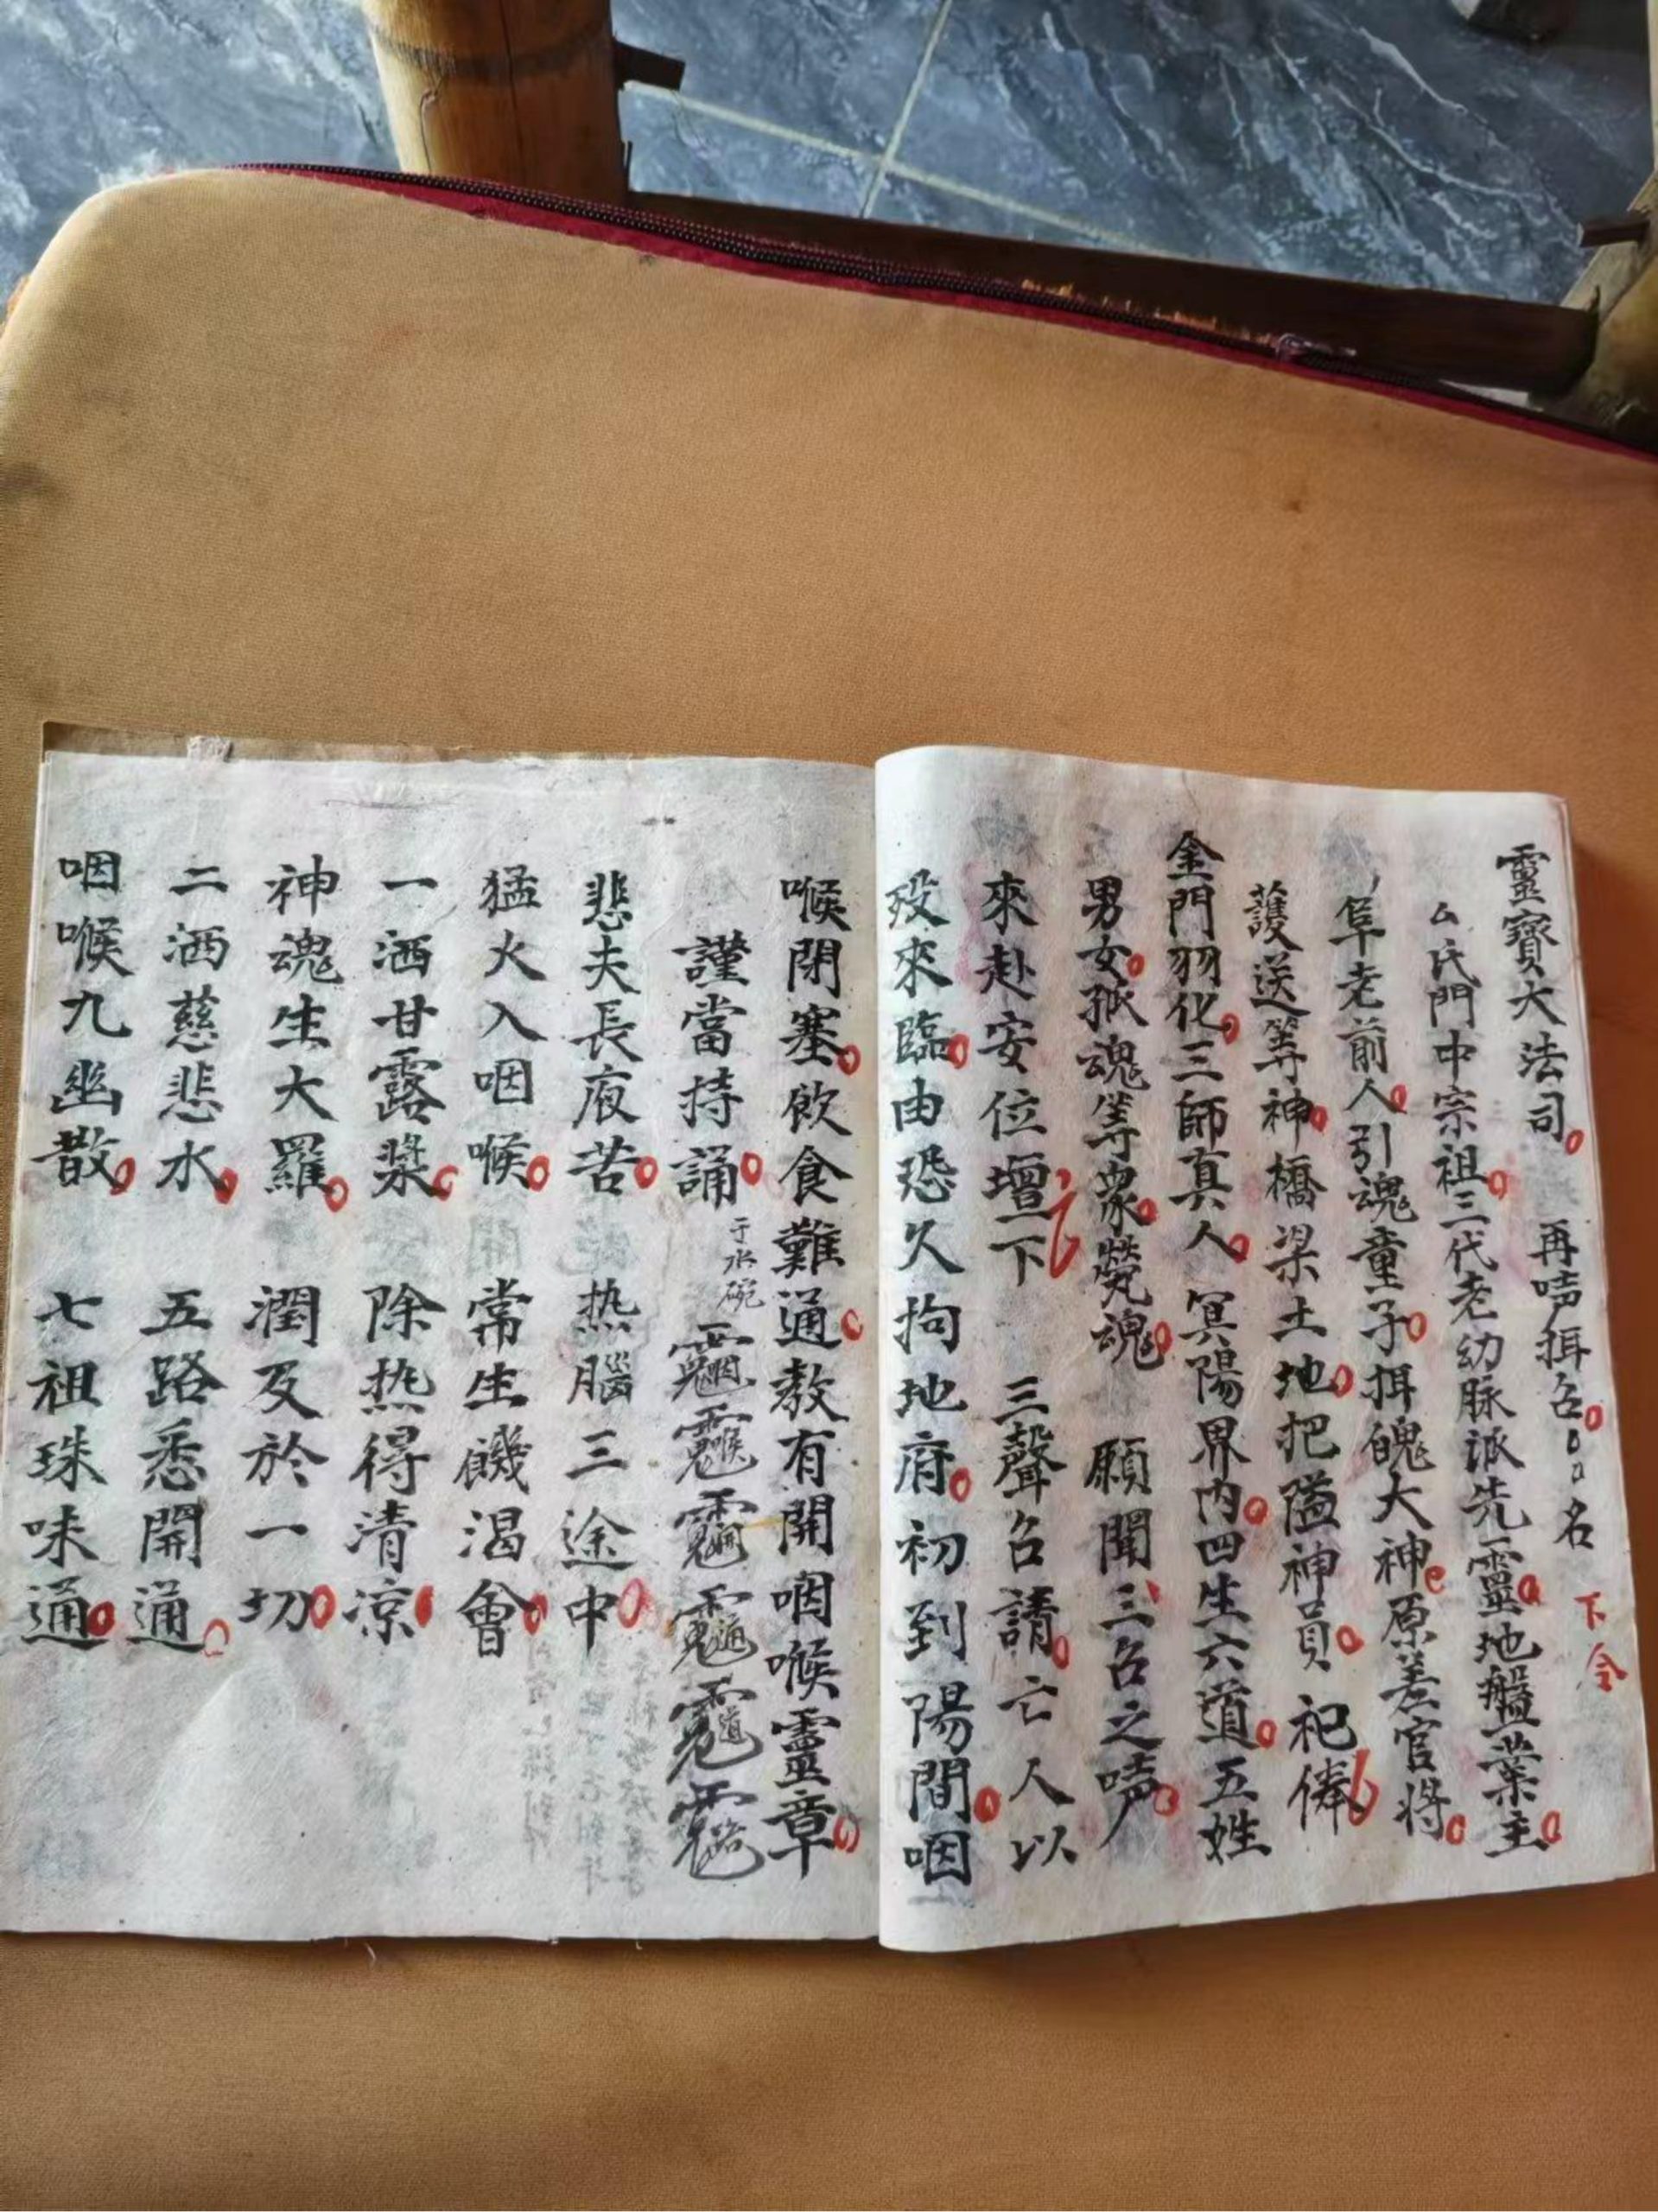 靈寶大法司 再唠揖召名
下令
厶氏門中宗祖三代老幼脉派先靈地盤業主
阜老前人引魂童子揖魄大神原差官將
護送等神橋梁土地把隘神員 祀俸
金門羽化三師真人 冥陽界内四生六道五姓
男女孤魂等衆㷀魂 願聞三召之唠
來赴安位壇下 三聲召請亡人以
殁來臨由恐久拘地府初到陽間咽
喉閉塞飲食難通教有開咽喉靈章
謹當持誦 于水碗
悲夫長夜苦 热腦三途中
猛火入咽喉 常生饑渴會
一洒甘露漿 除热得清凉
神魂生大羅 潤及於一切
二洒慈悲水 五路悉開通
咽喉九幽散 七祖珠味通